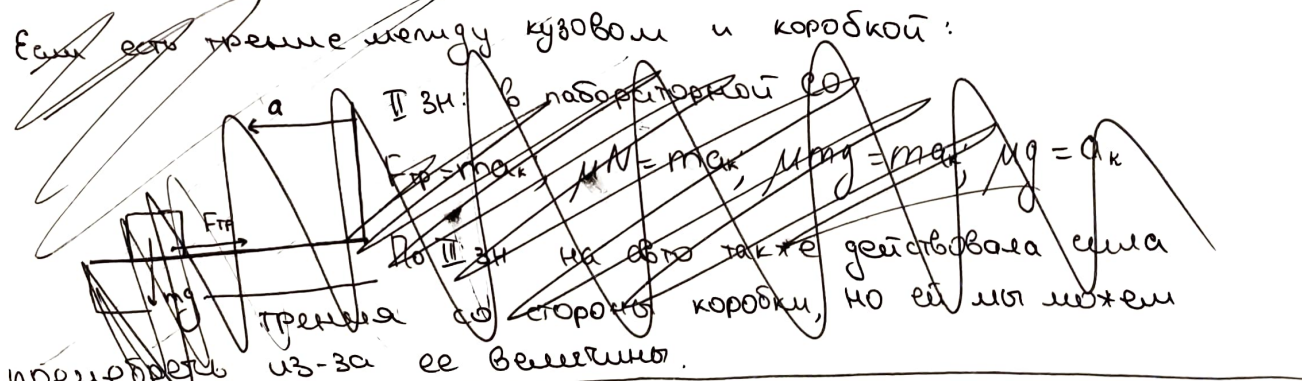 Если есть трение между кузовом и коробкой:
a II ЗН: в лабораторной СО
Fтр = maк, μN = maк; μmg = maк; μg = aк
Fтр
По III ЗН на авто также действовала сила
mg
трения со стороны коробки, но ей мы можем
пренебречь из-за ее величины.